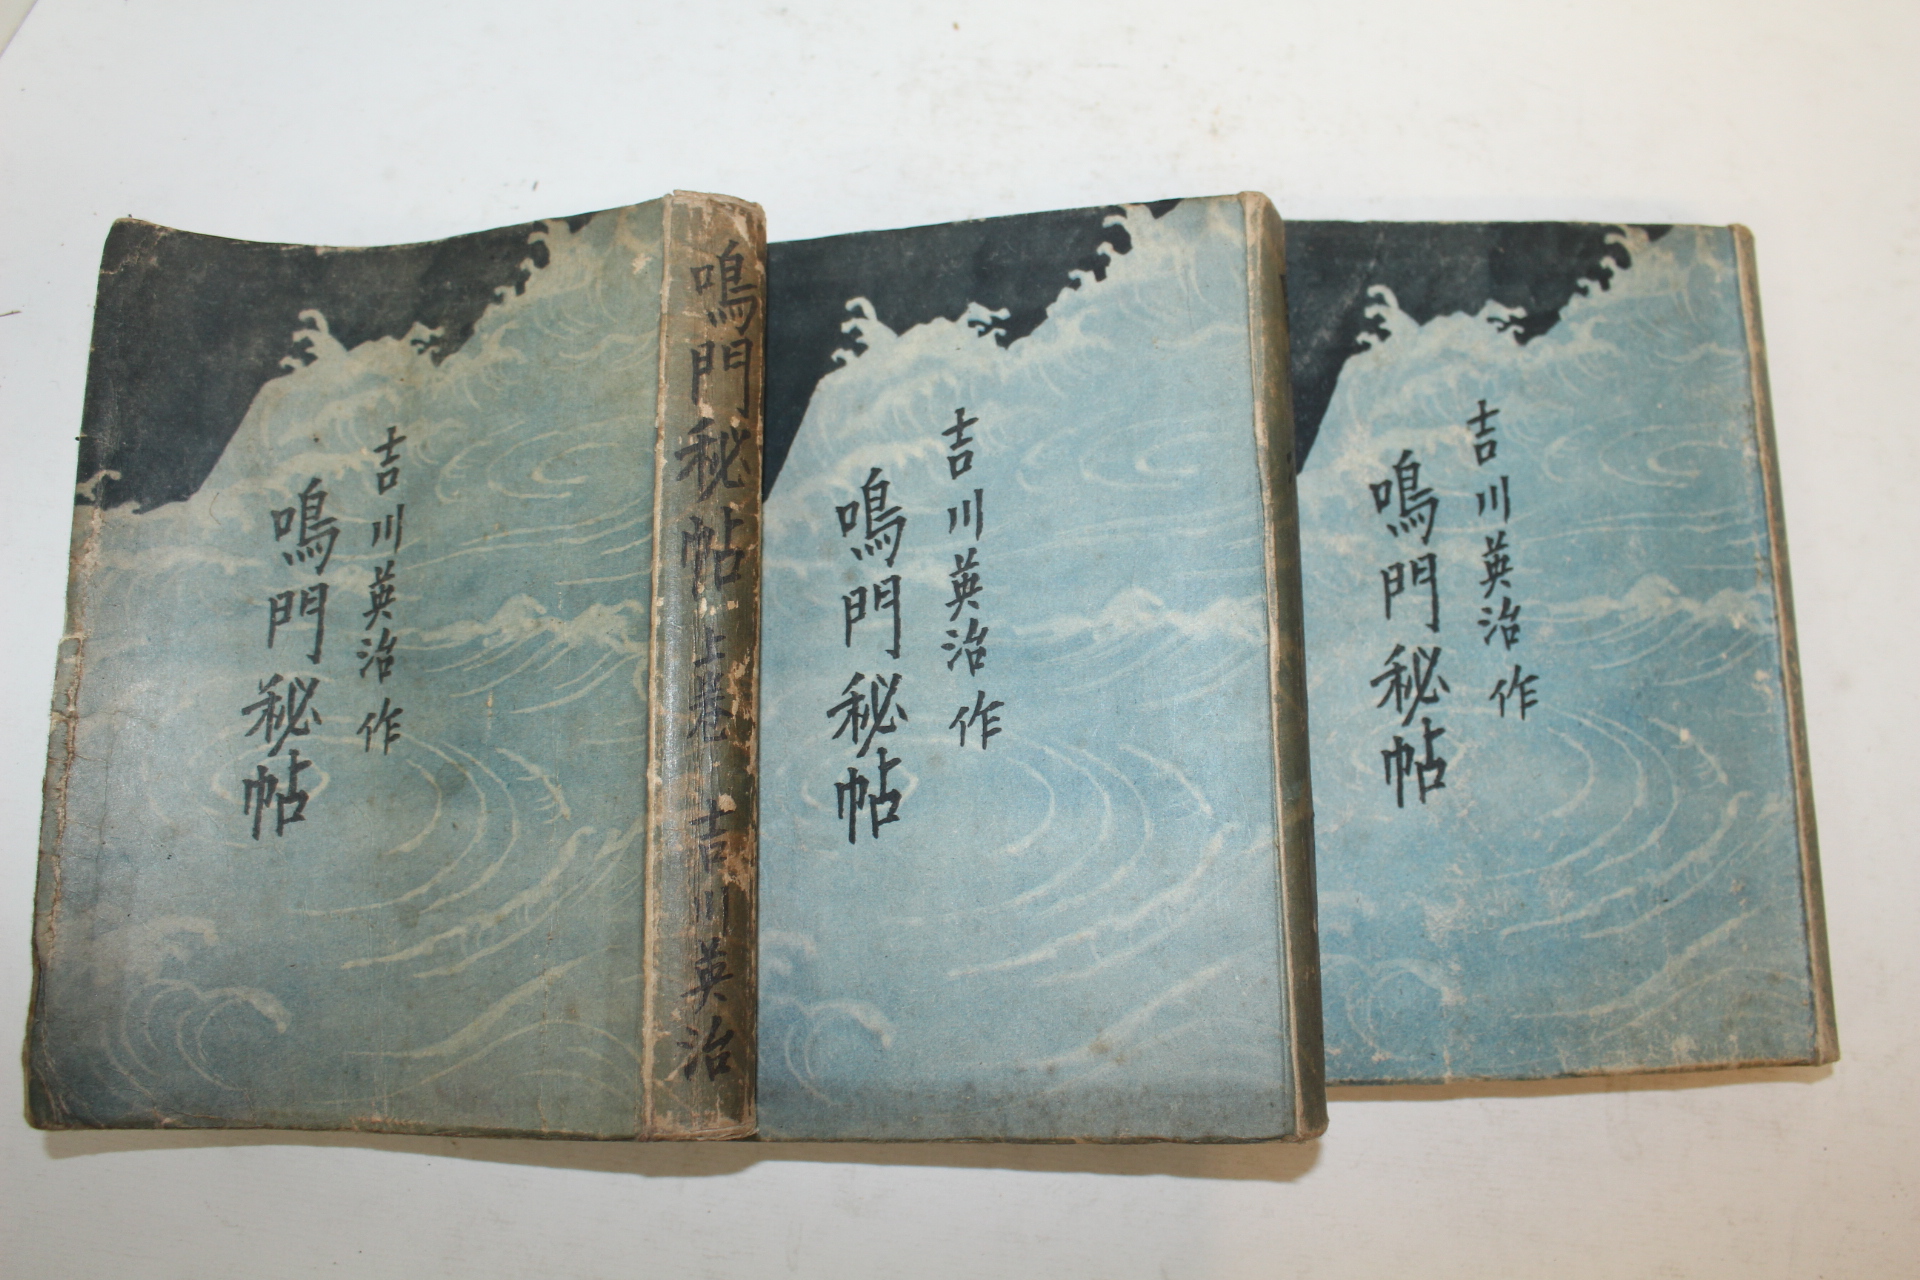 吉川英治作
鳴門秘帖
鳴門秘帖 上巻 吉川英治
吉川英治作
鳴門秘帖
吉川英治作
鳴門秘帖